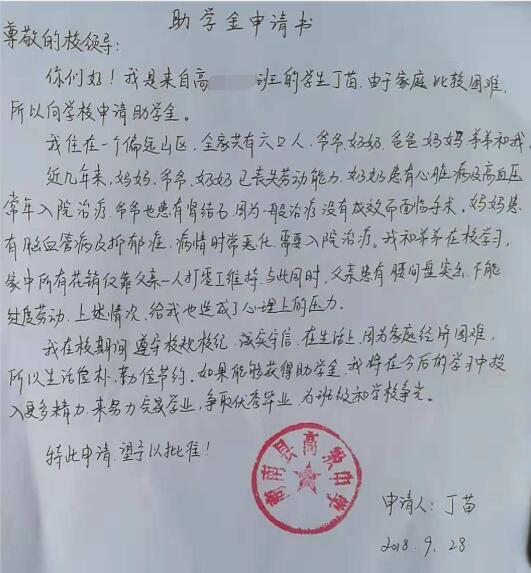 助学金申请书
尊敬的校领导：
你们好！我是来自高 班的学生丁苗，由于家庭比较困难，
所以向学校申请助学金。
我住在一个偏远山区，全家共有六口人，爷爷、奶奶、爸爸、妈妈、弟弟和我。
近几年来，妈妈、爷爷、奶奶已丧失劳动能力，奶奶患有心脏病及高血压
常年入院治疗，爷爷也患有肾结石，因为一般治疗没有成效而面临手术，妈妈患
有脑血管病及抑郁症，病情时常恶化，需要入院治疗。我和弟弟在校学习，
家中所有花销仅靠父亲一人打零工维持，与此同时，父亲患有腰间盘突出，不能
过度劳动，上述情况，给我也造成了心理上的压力。
我在校期间遵守校规校纪，诚实守信，在生活上，因为家庭经济困难，
所以生活俭朴，勤俭节约。如果能够获得助学金，我将在今后的学习中投
入更多精力，来努力完成学业，争取优秀毕业，为班级和学校争光。
特此申请，望予以批准！
县高级中学
申请人：丁苗
2018.9.28